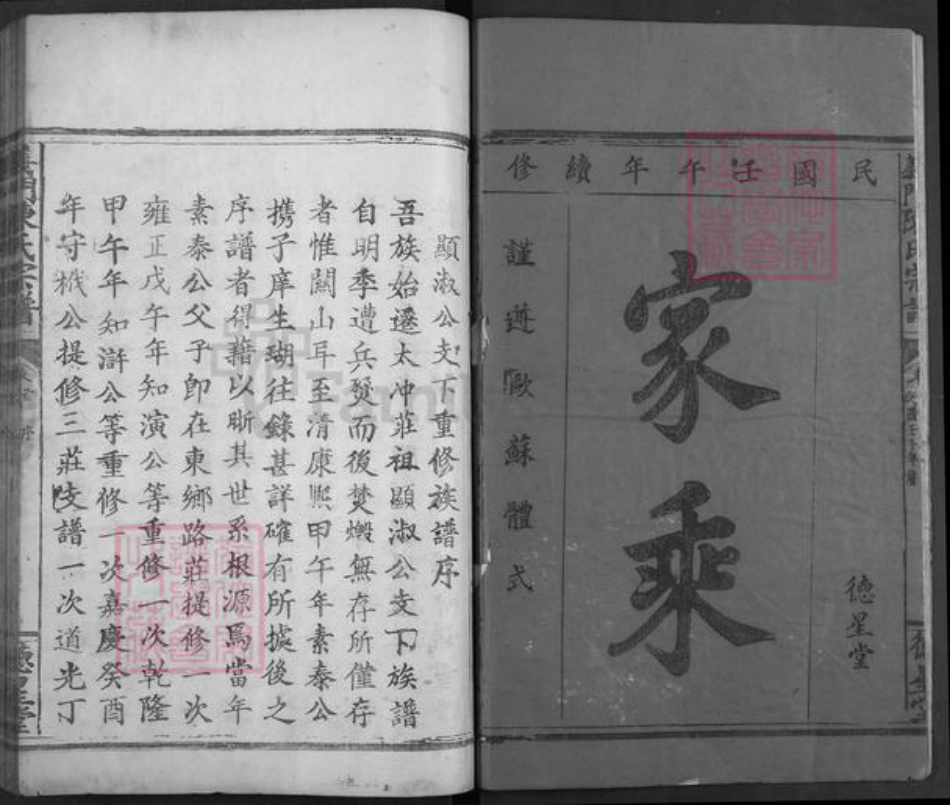 民國壬午年續修
德星堂
家乘
謹遵歐蘇體式
顯淑公支下重修族譜序
吾族始遷太冲莊祖顯淑公支下族譜
自明季遭兵燹而後焚燬無存所僅存
者惟關山耳至清康熙甲午年素泰公
携子庠生瑚往錄甚詳確有所據後之
序譜者得藉以晰其世系根源焉當年
素泰公父子卽在東鄉路莊提修一次
雍正戊午年知演公等重修一次乾隆
甲午年知滸公等重修一次嘉慶癸酉
年守機公提修三莊支譜一次道光丁
義門陳氏宗譜
德星堂